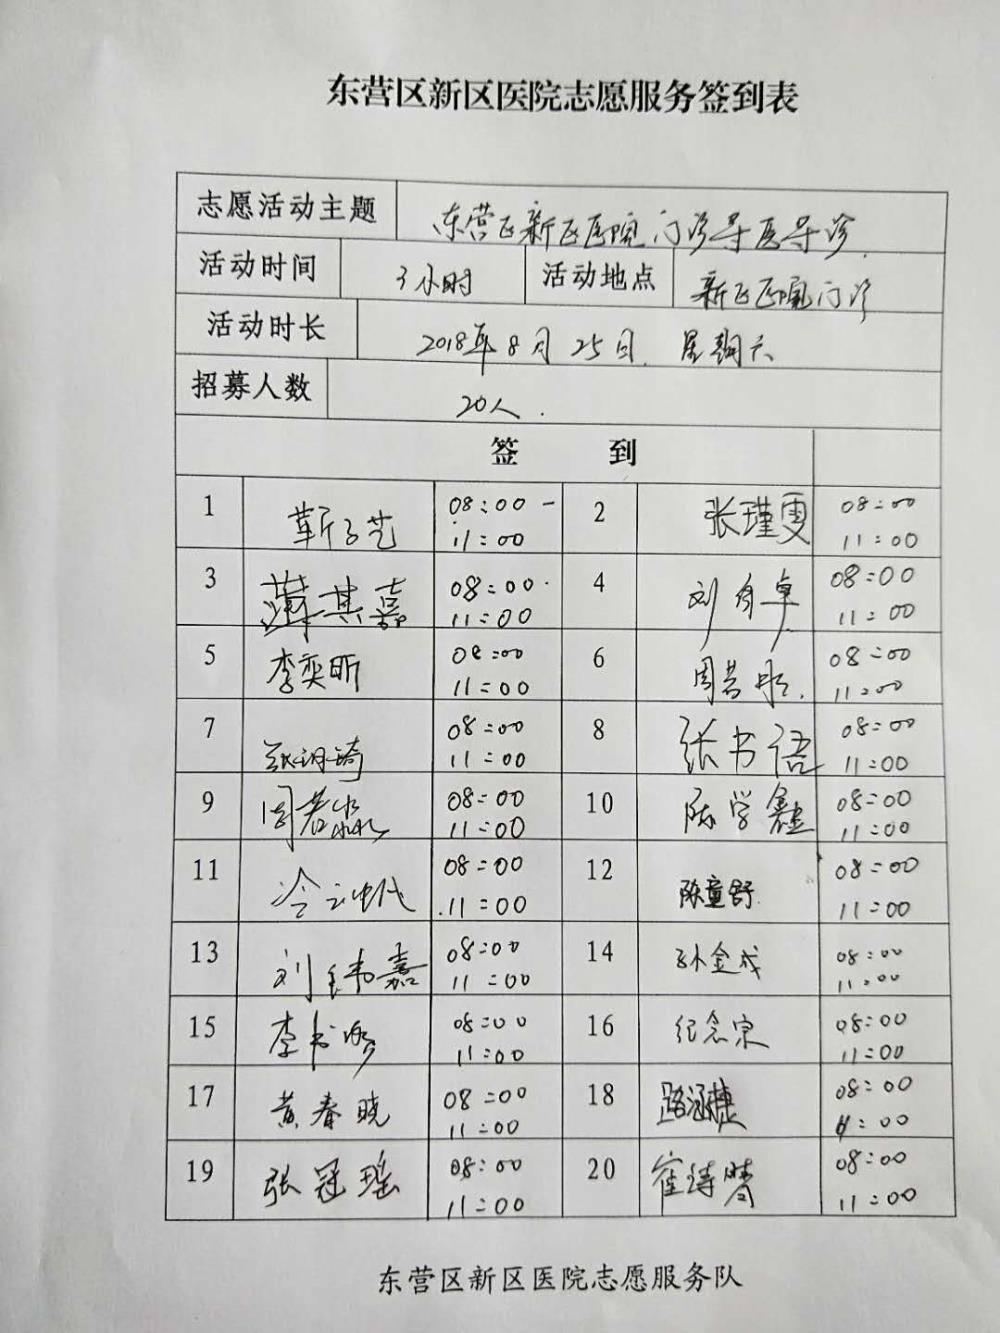 东营区新区医院志愿服务签到表
志愿活动主题 东营区新区医院门诊导医导诊
活动时间 3小时 活动地点 新区医院门诊
活动时长 2018年8月25日 星期六
招募人数 20人.
签 到
1 靳子艺 08:00-11:00 2 张瑾雯 08:00 11:00
3 薄其嘉 08:00 11:00 4 刘 卓 08:00 11:00
5 李奕昕 08:00 11:00 6 周 08:00 11:00
7 张 琦 08:00 11:00 8 张书语 08:00 11:00
9 周若淼 08:00 11:00 10 陈学鑫 08:00 11:00
11 08:00 11:00 12 陈童舒 08:00 11:00
13 刘 嘉 08:00 11:00 14 孙金成 08:00 11:00
15 李书 08:00 11:00 16 纪念宗 08:00 11:00
17 黄春晓 08:00 11:00 18 路涵捷 08:00 11:00
19 张冠瑶 08:00 11:00 20 崔诗琴 08:00 11:00
东营区新区医院志愿服务队